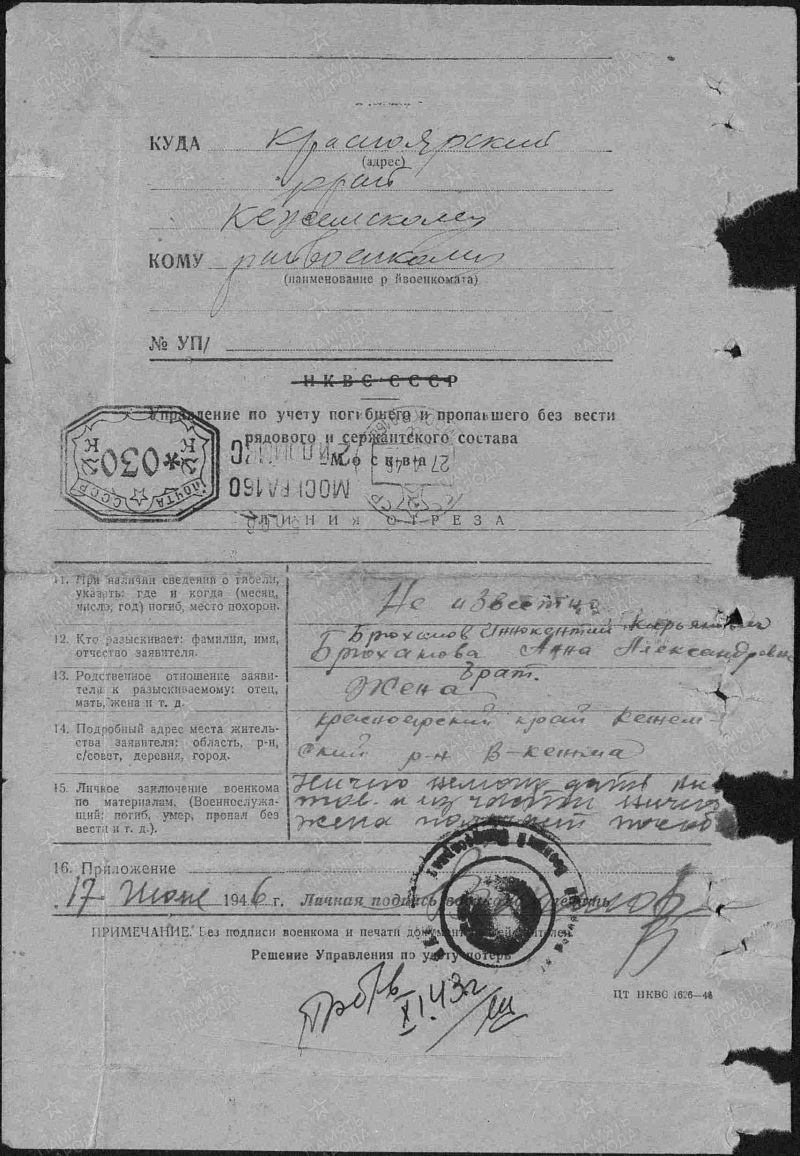 КУДА Красноярский
(адрес)
край
Кежемскому
КОМУ райвоенкому
(наименование р йвоенкомата)
№ УП/
НКВС СССР
Управление по учету погибшего и пропавшего без вести
рядового и сержантского состава
Москва
ПОЧТА СССР
030
К К
МОСКВА 160
27
ЛИНИЯ ОТРЕЗА
11. При наличии сведений о гибели,
указать: где и когда (месяц,
число, год) погиб, место похорон.
Не известно
12. Кто разыскивает: фамилия, имя,
отчество заявителя.
Брюханов Иннокентий
Брюханова Анна Александровна
13. Родственное отношение заявителя
к разыскиваемому: отец,
мать, жена и т. д.
брат.
Жена
14. Подробный адрес места жительства
заявителя: область, р-н,
с/совет, деревня, город.
Красноярский край Кежем-
ский р-н В-кежма
15. Личное заключение военкома
по материалам, (Военнослужащий:
погиб, умер, пропал без
вести и т. д.).
ничего
жена получает пособ
16. Приложение
17 Июня 1946 г. Личная подпись военкома
ПРИМЕЧАНИЕ. Без подписи военкома и печати документ недействителен.
Решение Управления по учету потерь
Пр б/в
XI.43г
ЦТ НКВС 1626—46
ПАМЯТЬ НАРОДА